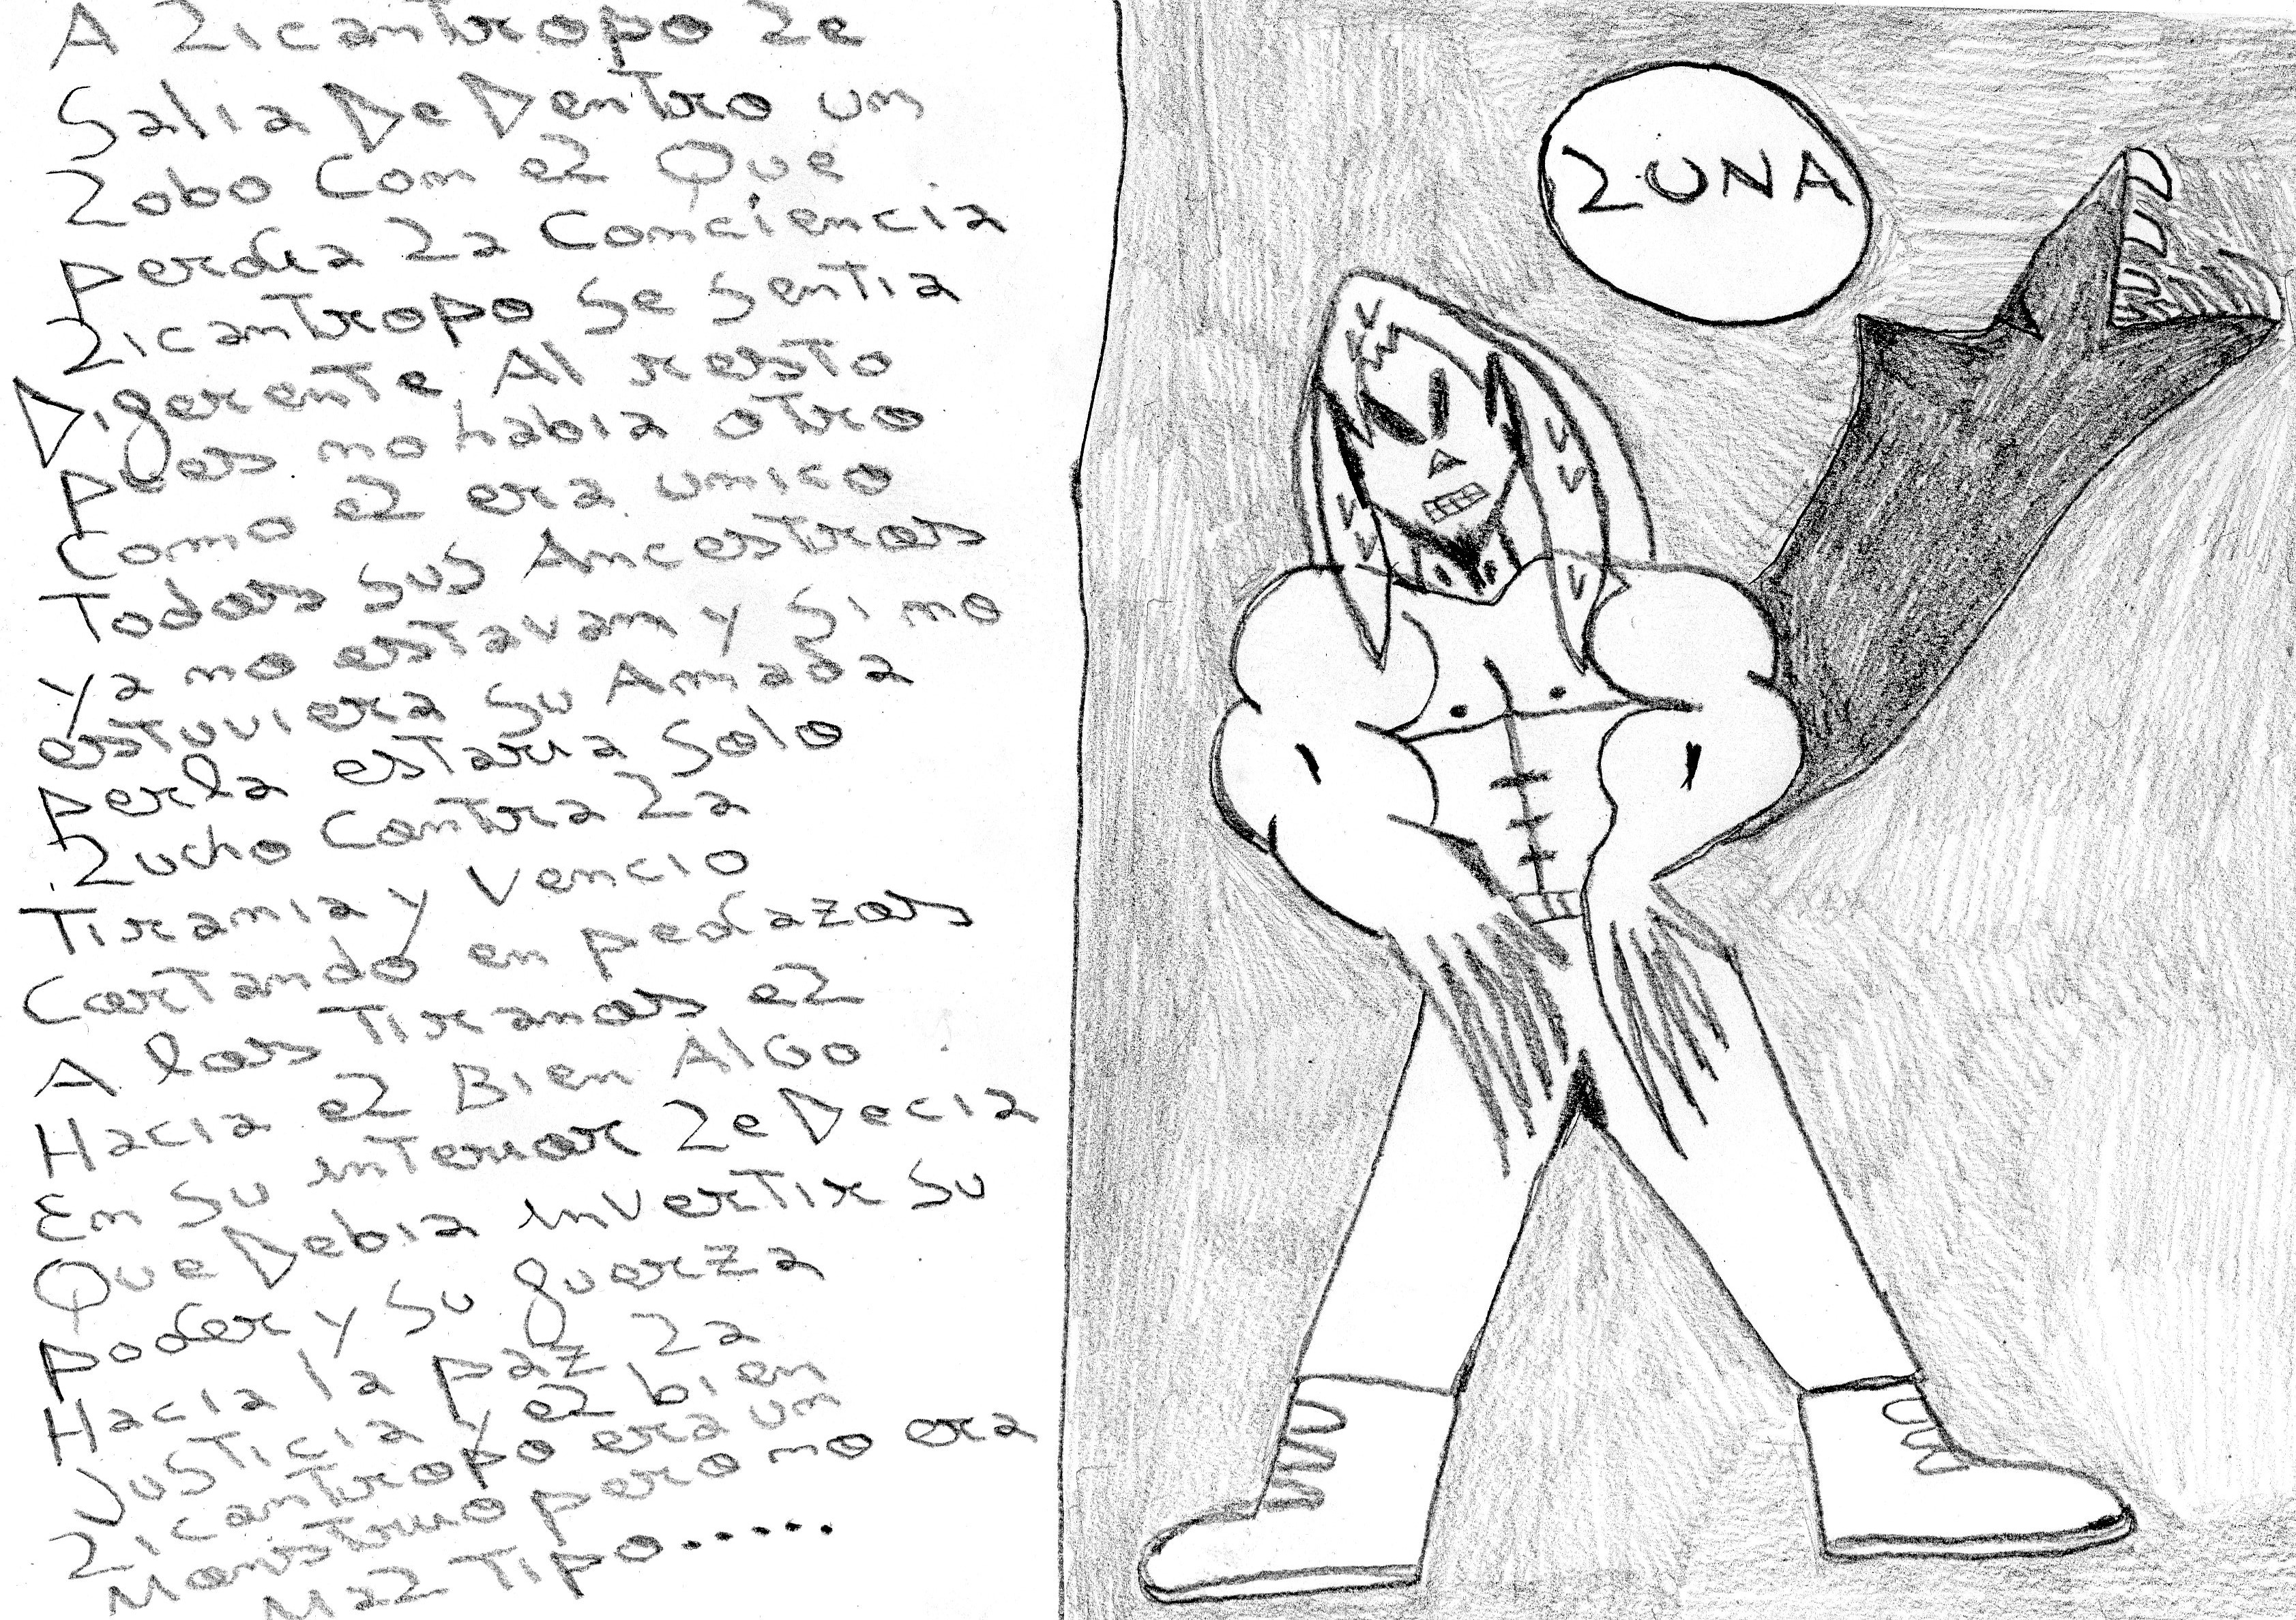 A Licantropo Le
Salia De Dentro un
Lobo Con eL Que
perdia La Conciencia
Licantropo Se Sentia
Diferente Al resto
Pues no habia otro
Como eL era unico
Todos sus Ancestros
ya no estavan y Si no
estuviera su Amada
perla estaria Solo
Lucho Contra La
Tirania y Vencio
Cortando en pedazos
A los Tiranos eL
Hacia eL Bien AlGo
En Su interior Le Decia
Que Debia invertir Su
poder y Su fuerza
Hacia la paz La
Justicia y eL bien
Licantropo era un
Monstruo pero no era
MaL Tipo.....
LUNA